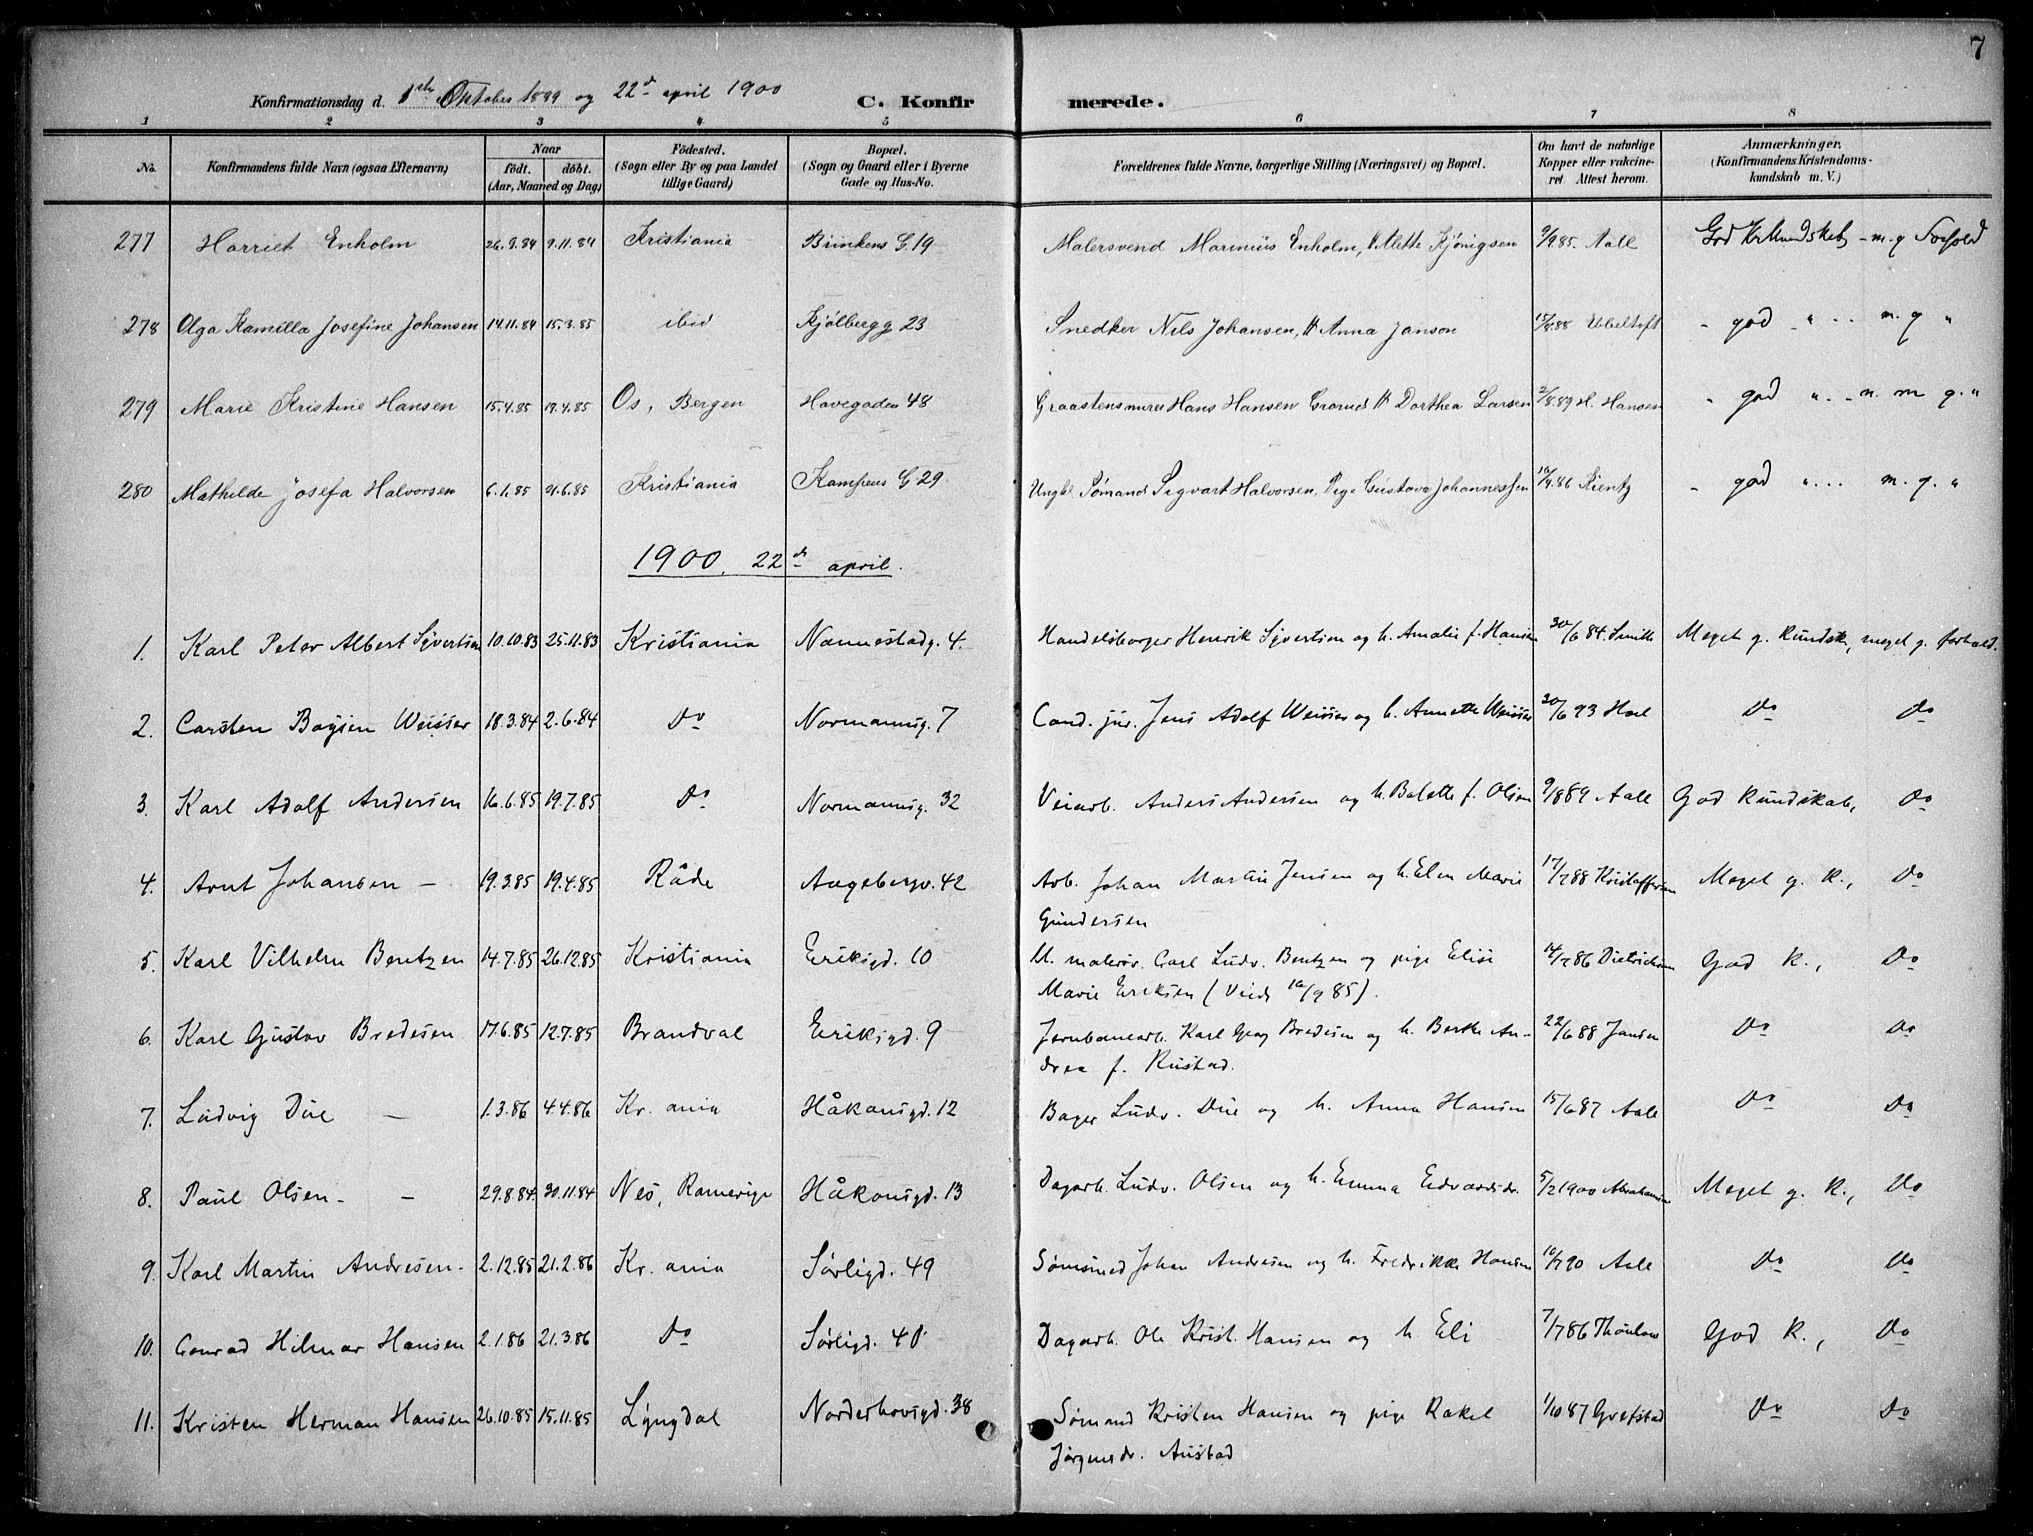 7
Konfirmationsdag d. 1ste Oktober 1899 og 22d april 1900 C. Konfirmerede.
1 2 3 4 5 6 7 8
No. Konfirmandens fulde Navn (ogsaa Efternavn) Naar født. døbt. (Aar, Maaned og Dag) Fødested. (Sogn eller By og paa Landet tillige Gaard) Bopæl. (Sogn og Gaard eller i Byerne Gade og Hus-No. Forældrenes fulde Navne, borgerlige Stilling (Næringsvei) og Bopæl. Om havt de naturlige Kopper eller vakcineret Attest herom. Anmærkninger. (Konfirmandens Kristendomskundskab m. V.)
277 Harriet Enholm 26.9.84 9.11.84 Kristiania Brinkens G. 19 Malersvend Marinius Enholm, H. Alette Kjønigsen 9/9.85. Aall God Kr.kundskab - m. g Forhold
278 Olga Kamilla Josefine Johansen 14.11.84 15.3.85 ibid Kjølbergg 23 Snedker Nils Johansen, H Anna Janson Ebeltoft - god " m. g "
279 Marie Kristine Hansen 15.4.85 19.4.85 Os, Bergen Havegaden 48 Graastensmurer Hans Hansen H Dorthea Larsen 2/8.89 H. Hansen - god " m g. "
280 Mathilde Josefa Halvorsen 6.1.85 21.6.85 Kristiania Kampens G 29 Ungk. Sømand Sigvart Halvorsen, Pige Gustava Johannessen Rientz - god " m. g. "
1900. 22d april.
1. Karl Peter Albert Syvertsen 10.10.83 25.11.83 Kristiania Nannestadg. 4. Handelsborger Henrik Syvertsen og h. Amalie f. Hansen 30/6 84. Smith Meget g. Kundsk., meget g. forhold.
2. Carsten Boysen Weisser 18.3.84 2.6.84 Do Normannsg. 7 Cand. jur. Jens Adolf Weisser og h. Annette Weisser 30/6 93 Hoel Do Do
3. Karl Adolf Andersen 16.6.85 19.7.85 Do Normannsg. 32 Veiarb. Anders Andersen og h. Bolette f. Olsen 9/8 89 Aall God kundskab, Do
4. Arnt Johansen - 19.3.85 19.4.85 Råde Aagebergv. 42 Arb. Johan Martin Jensen og h. Elen Marie
Gundersen 17/7 88 Kristoffersen Meget g. K., Do
5. Karl Vilhelm Bentzen 14.7.85 26.12.85 Kristiania Eriksgd. 10 U. malersv. Carl Ludv. Bentzen og pige Elise
Marie Eriksen (Vieds 10/9 85). 14/7 86 Dietrichson God K., Do
6. Karl Gustav Bredesen 17.6.85 12.7.85 Brandval Eriksgd. 9 Jernbanearb. Karl Georg Bredesen og h. Berthe An-
drea f. Rustad. 22/6 88 Jansen Do Do
7. Ludvig Due - 1.3.86 4.4.86 Kr. ania Håkonsgd. 12 Bager Ludv. Due og h. Anna Hansen 15/6 87 Aall Do Do
8. Paul Olsen - - 29.8.84 30.11.84 Nes, Romerige Håkonsgd. 13 Dagarb. Ludv. Olsen og h. Emma Edvardsdr. 5/2 1900 Abrahamsen Meget g. K., Do
9. Karl Martin Andresen - 2.12.85 21.2.86 Kr. ania Sørligd. 49 Sømsmed Johan Andresen og h. Fredrikke Hansen 10/7 90 Aall Do Do
10. Conrad Hilmar Hansen 2.1.86 21.3.86 Do Sørligd. 40 Dagarb. Ole Krist. Hansen og h. Eli 7/7 86 Thaulow God K., Do
11. Kristen Herman Hansen 26.10.85 15.11.85 Lyngdal Norderhovsgd. 38 Sømand Kristen Hansen og pige Rakel
Jørgensdr. Austad 1/10 87 Grefstad Do Do